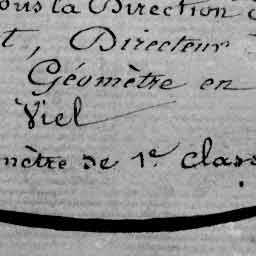 ous la Direction
t, Directeur
Géomètre en
Viel
mètre de 1e. class